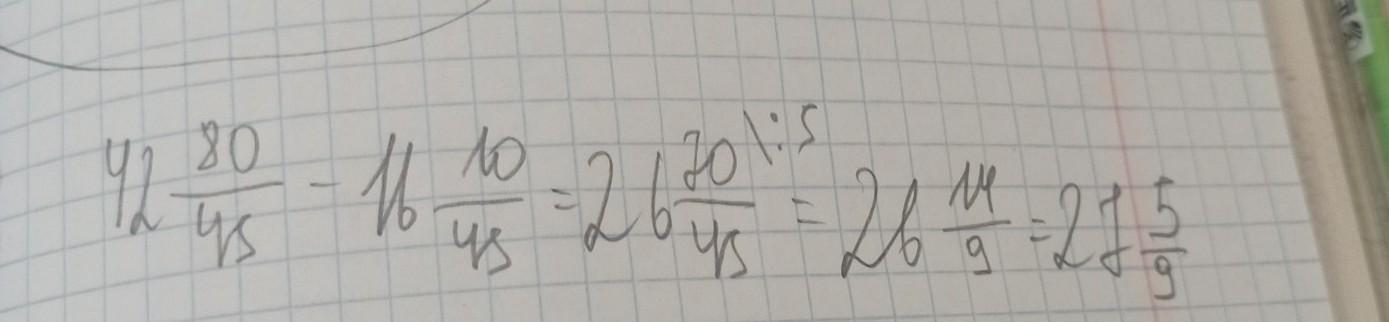 42 80/45 - 16 10/45 = 26 70/45 \:5 = 26 14/9 = 27 5/9